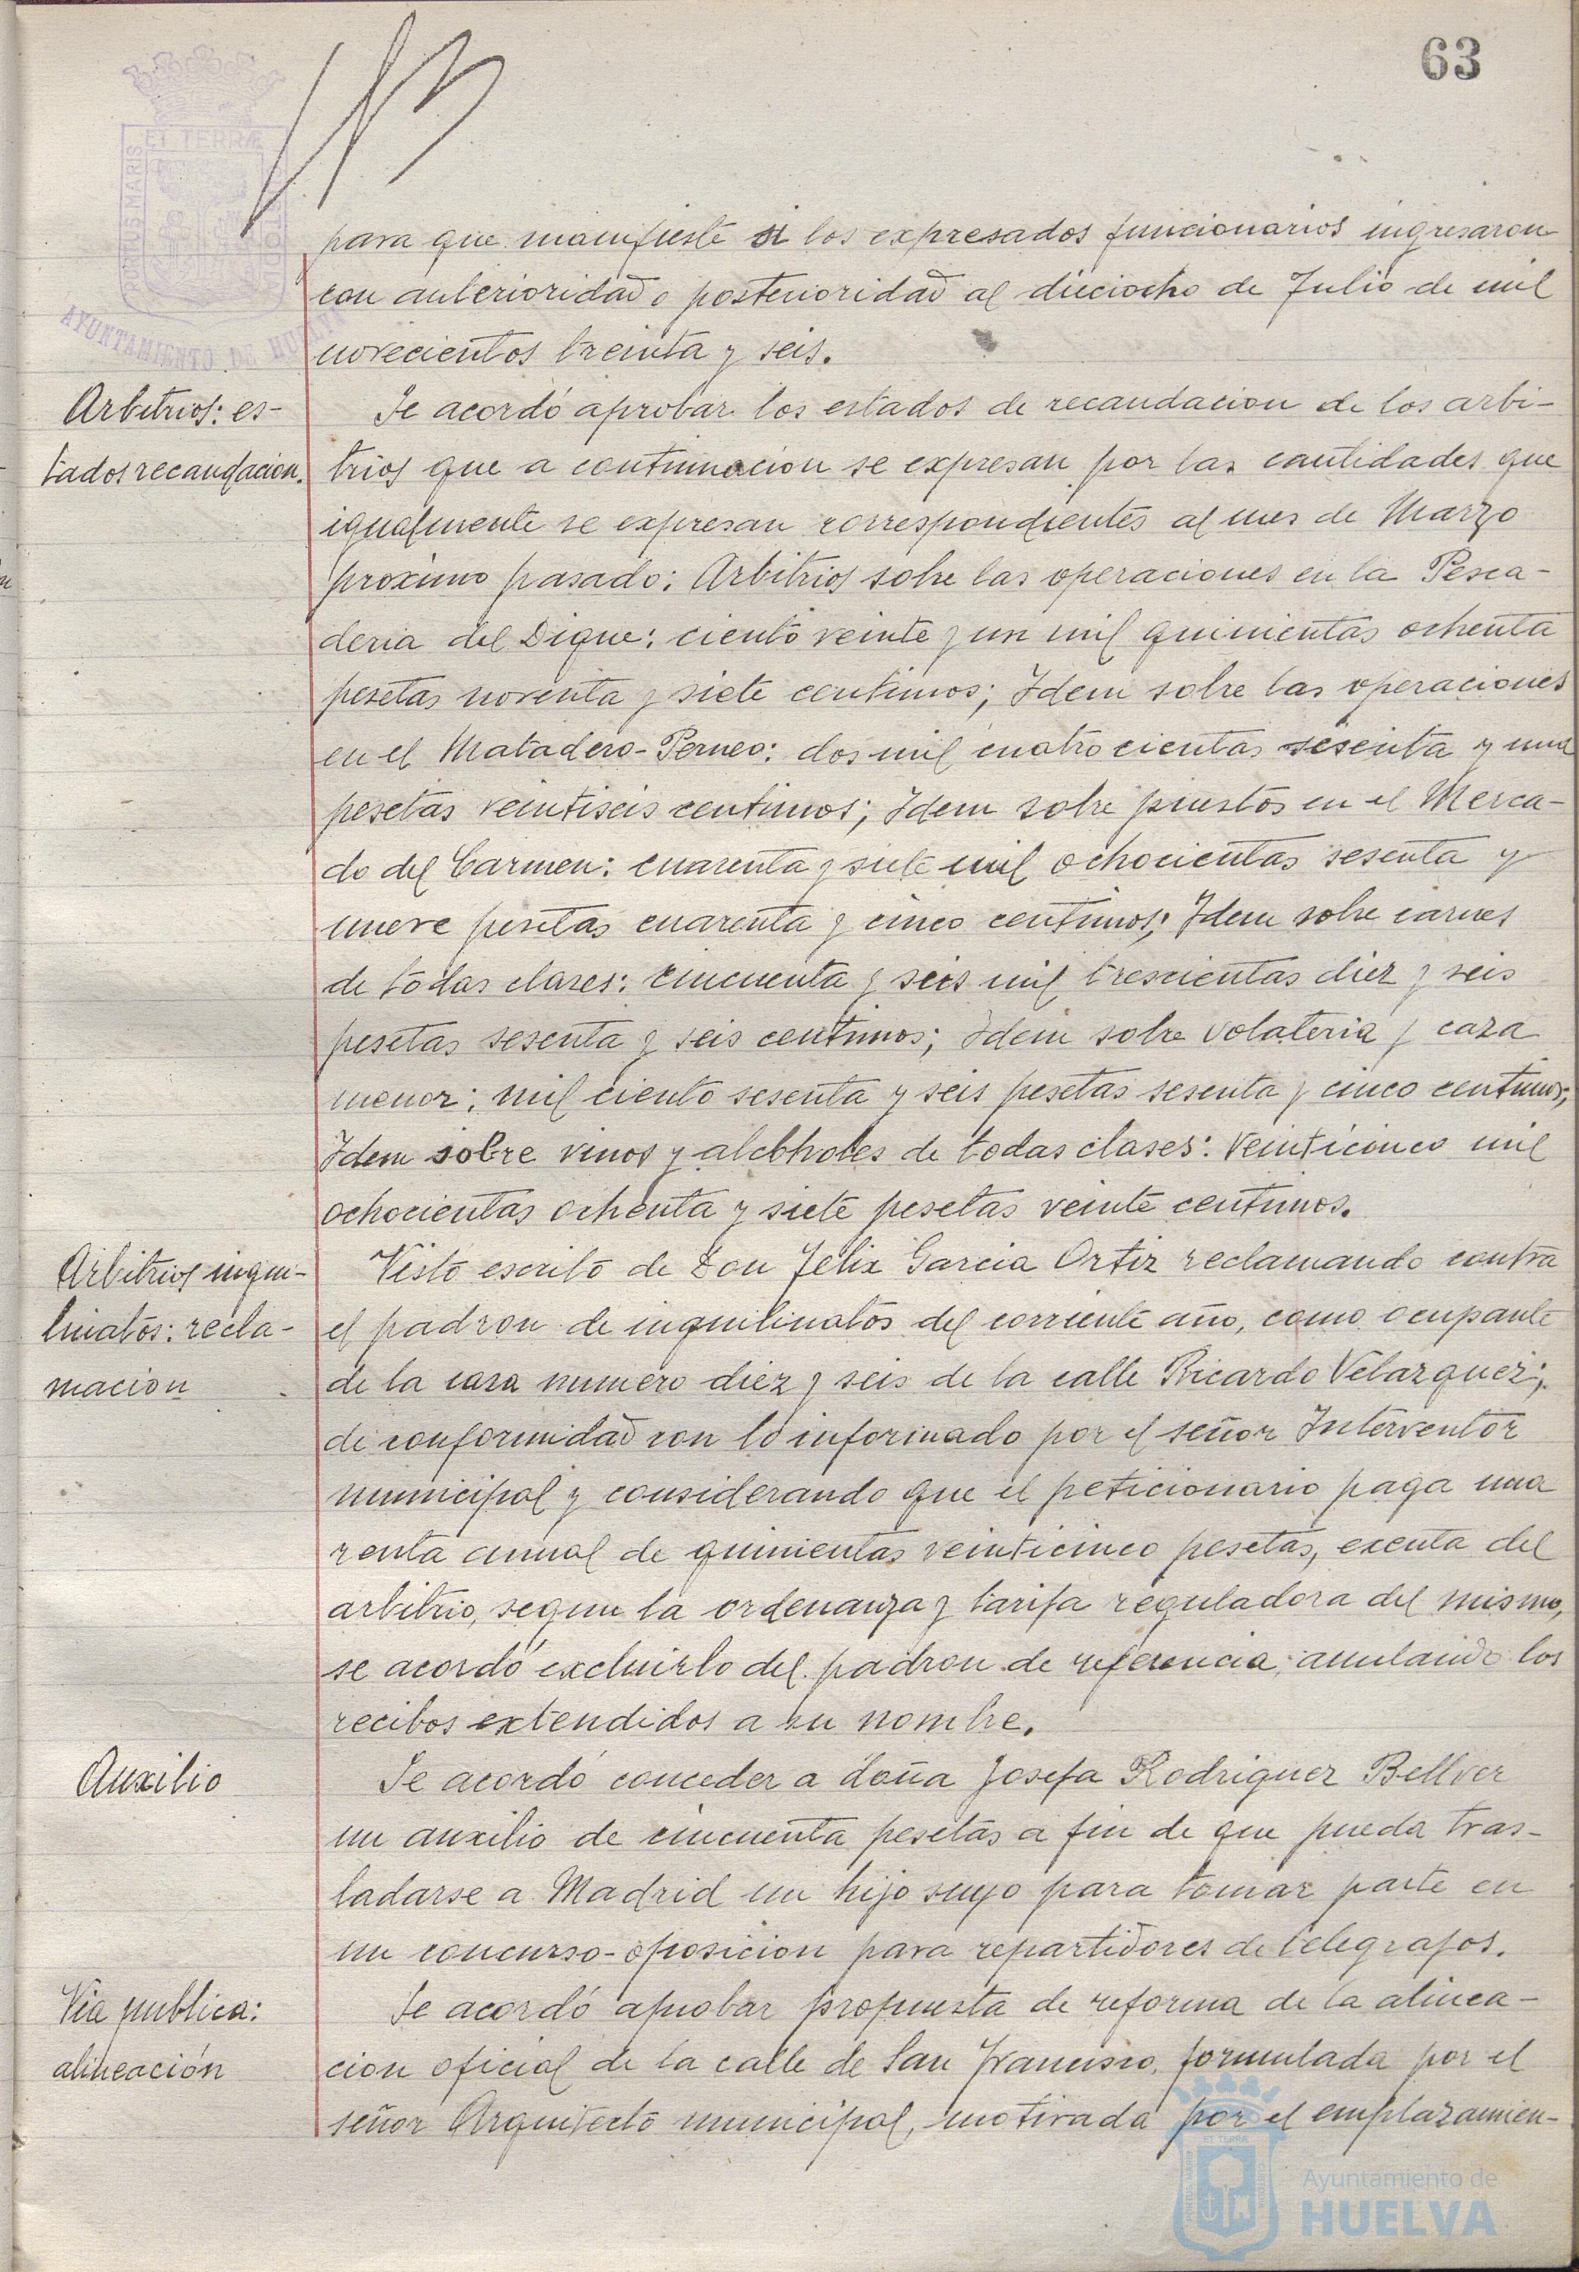 63
ET TERRÆ
PORTUS MARIS
AYUNTAMIENTO DE HUELVA
para que manifieste si los expresados funcionarios ingresaron
con anterioridad o posterioridad al dieciocho de Julio de mil
novecientos treinta y seis.
Arbitrios: es-
tados recaudacion.
Se acordó aprobar los estados de recaudacion de los arbi-
trios que a continuacion se expresan por las cantidades que
igualmente se expresan correspondientes al mes de Marzo
proximo pasado: Arbitrios sobre las operaciones en la Pesca-
deria del Dique: ciento veinte y un mil quinientas ochenta
pesetas noventa y siete centimos; Idem sobre las operaciones
en el Matadero-Perneo: dos mil cuatrocientas sesenta y una
pesetas veintiseis centimos; Idem sobre puestos en el Merca-
do del Carmen: cuarenta y siete mil ochocientas sesenta y
nueve pesetas cuarenta y cinco centimos; Idem sobre carnes
de todas clases: cincuenta y seis mil trescientas diez y seis
pesetas sesenta y seis centimos; Idem sobre volateria y caza
menor: mil ciento sesenta y seis pesetas sesenta y cinco centimos;
Idem sobre vinos y alcoholes de todas clases: veinticinco mil
ochocientas ochenta y siete pesetas veinte centimos.
Arbitrios inqui-
linatos: recla-
macion
Visto escrito de Don Felix Garcia Ortiz reclamando contra
el padron de inquilinatos del corriente año, como ocupante
de la casa numero diez y seis de la calle Ricardo Velazquez;
de conformidad con lo informado por el señor Interventor
municipal y considerando que el peticionario paga una
renta anual de quinientas veinticinco pesetas, exenta del
arbitrio, segun la ordenanza y tarifa reguladora del mismo,
se acordó excluirlo del padron de referencia, anulando los
recibos extendidos a su nombre.
Auxilio
Se acordó conceder a doña Josefa Rodriguez Bellver
un auxilio de cincuenta pesetas a fin de que pueda tras-
ladarse a Madrid un hijo suyo para tomar parte en
un concurso-oposicion para repartidores de telegrafos.
Via publica:
alineación
Se acordó aprobar propuesta de reforma de la alinea-
cion oficial de la calle de San Francisco, formulada por el
señor Arquitecto municipal, motivada por el emplazamien-
Ayuntamiento de
HUELVA